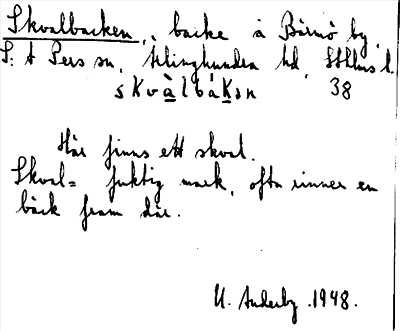 Skvalbacken, backe å Bärmö by,
S:t Pers sn, Åkinghundra hd, Sthlms l.
skvàlbákən 38
Här finns ett skval.
Skval = fuktig mark, ofta rinner en
bäck fram där.
U. Anderby. 1948.